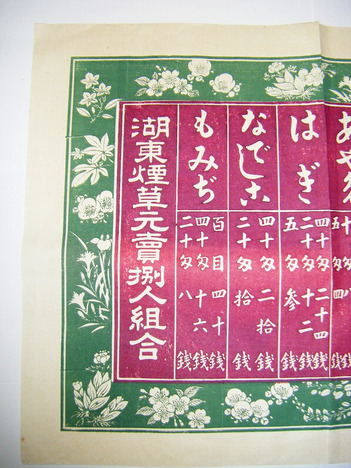 あや
はぎ
四十匁 二十四 銭
二十匁 十二 銭
五匁 参 銭
なでしこ
四十匁 二拾 銭
二十匁 拾 銭
もみぢ
百目 四十 銭
四十匁 十六 銭
二十匁 八 銭
湖東煙草元賣捌人組合